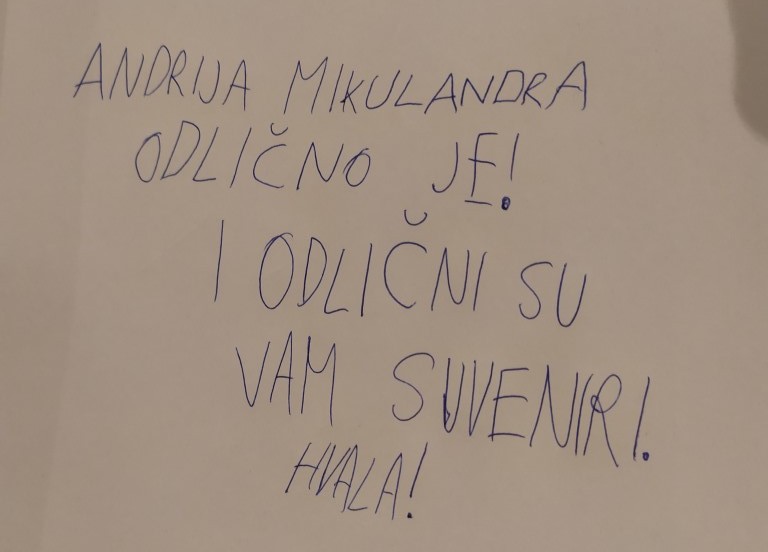 ANDRIJA MIKULANDRA
ODLIČNO JE!
I ODLIČNI SU
VAM SUVENIRI.
HVALA!